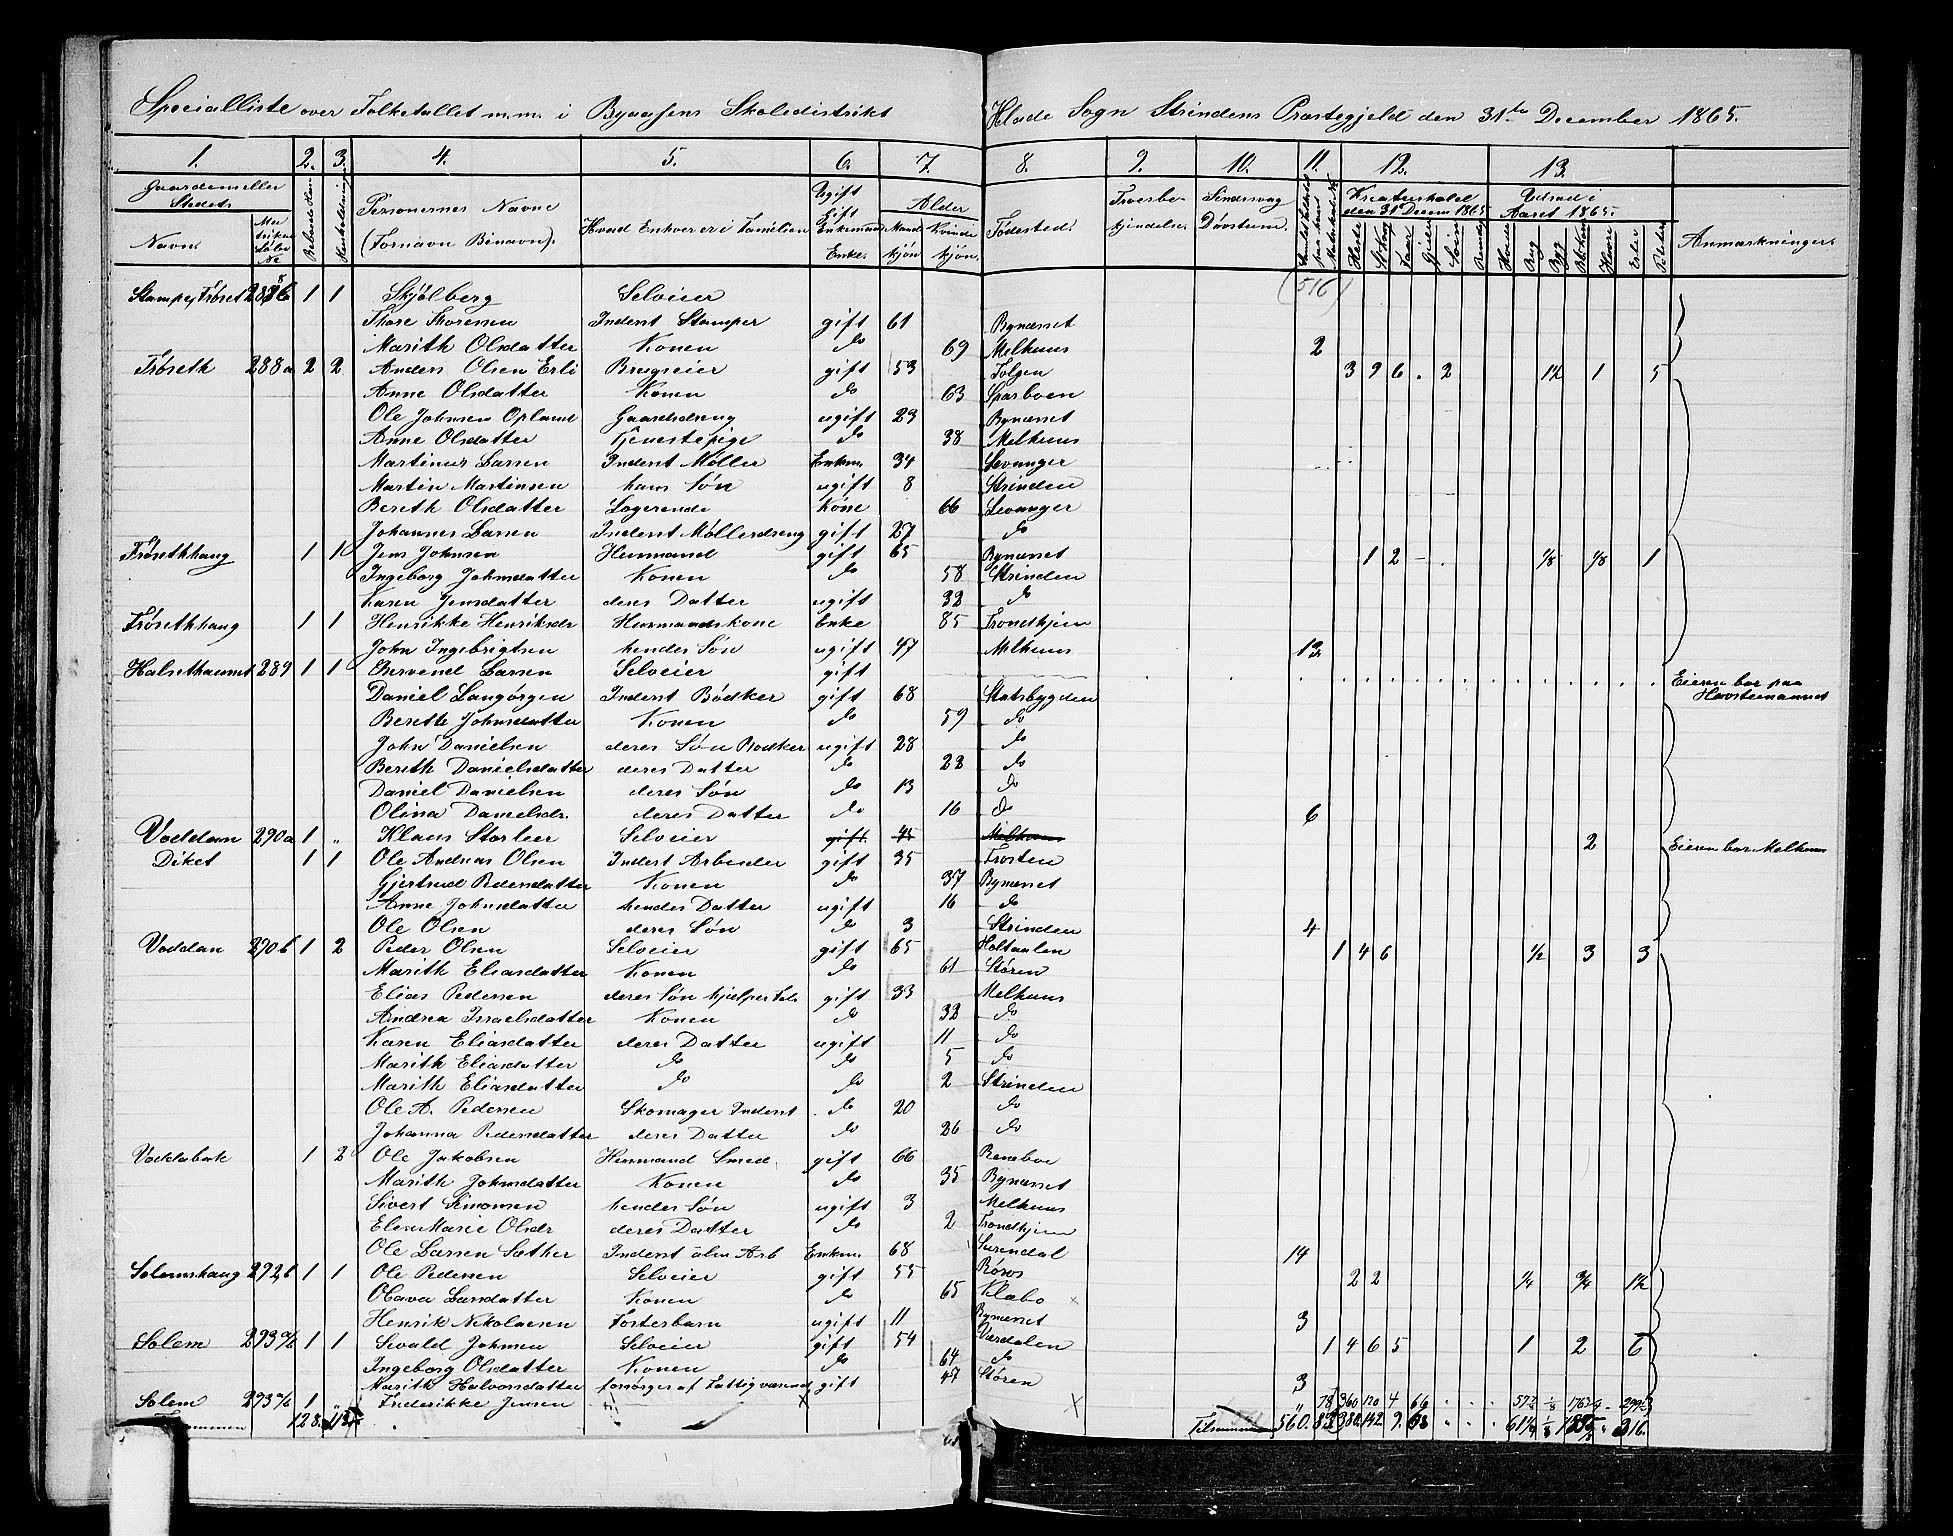 Specialliste over Folketallet m.m. i Byaasens Skoledistrikt Hlade Sogn Strindens Præstegjeld den 31te December 1865.
1. 2. 3. 4. 5. 6. 7. 8. 9. 10. 11. 12. 13.
Gaardens eller Stedets
Navn. Matrikul Løbe No
Beboede Huse
Personernes Navne
(Fornavn Binavn).
Hvad Enhver er i Familien
Ugift Gift Enkemand Enke.
Alder
Mandkjøn Kvindekjøn.
Fødested.
Troesbekjendelse.
Sindssvag Døvstum.
Kreaturhold den 31 Decem 1865
Heste Faar Gjeder Sviin
Udsæd i Aaret 1865.
Hvede Rug Byg Blkorn Havre Erter Poteter
Anmærkninger.
Stampe, Frøset 288b 1 1 Skjølberg Selveier (516)
Thore Thoresen Inderst Stamper gift 61 Bynæsset
Marith Olsdatter Konen do 69 Melhuus 2
Frøseth 288a 2 2 Anders Olsen Erli Brugseier gift 53 Tolgen 3 9 6 . 2 1½ 1 5
Anne Olsdatter Konen do 63 Sparboen
Ole Johnsen Opland Gaardsdreng ugift 23 Bynæsset
Anne Olsdatter Tjenestepige do 38 Melhuus
Martinus Larsen Inderst Møller Enkm. 34 Levanger
Martin Martinsen hans Søn ugift 8 Strinden
Bereth Olsdatter Logerende Kone 66 Levanger
Johannes Larsen Inderst Møllerdreng gift 27 do
Frøsethhaug 1 1 Jens Johnsen Huusmand gift 65 Bynæsset 1 2 - . ⅛ ⅛ 1
Ingeborg Johnsdatter Konen do 58 Strinden
Karen Jensdatter deres Datter ugift 32 do
Frøsethhaug 1 1 Henrikke Henriksdr Huusmandskone Enke 85 Trondhjem
John Ingebrigtsen hendes Søn ugift 47 Melhuus
Halsethaunet 289 1 1 Larsen Selveier gift Eieren bor paa
Daniel Langørgen Inderst Bødker gift 68 Statsbygden
Berethe Johnsdatter Konen do 59 do
John Danielsen deres Søn Bødker ugift 28 do
Bereth Danielsdatter deres Datter do 22 do
Daniel Danielsen deres Søn do 13 do
Olina Danielsdr. deres Datter do 16 do 6
Vaddan 290a 1 „ Klaus Storleer Selveier gift 45 Melhuus 2 Eieren bor Melhuus
Diket 1 1 Ole Andreas Olsen Inderst Arbeider gift 35 Frosten
Gjertrud Pedersdatter Konen do 37 Bynæsset
Anne Johnsdatter hendes Datter ugift 16 do
Ole Olsen deres Søn do 3 Strinden 4
Vaddan 290b 1 2 Peder Olsen Selveier gift 65 Holtaalen 1 4 6 ½ 3 3
Marith Eliasdatter Konen do 61 Støren
Elias Pedersen deres Søn hjælper Fad. gift 33 Melhuus
Andrea Israelsdatter Konen do 32 do
Karen Eliasdatter deres Datter ugift 11 do
Marith Eliasdatter do do 5 do
Marith Eliasdatter do do 2 Strinden
Ole A. Pedersen Skomager Inderst do 20 do
Johanna Pedersdatter deres Datter do 26 do
Vaddabak 1 2 Ole Jakobsen Huusmand Smed gift 66 Renneboe
Marith Johnsdatter Konen do 35 Bynæsset
Sivert Simonsen hendes Søn ugift 3 Melhuus
Elen Marie Olsdr deres Datter do 2 Trondhjem
Ole Larsen Sæther Inderst alm Arb Enkm. 68 Surendal 14
Solemshaug 292b 1 1 Ole Pedersen Selveier gift 55 Røros 2 2 ¼ ¾ 1½
Olava Larsdatter Konen do 65 Klæbo ×
Henrik Nikolaisen Fosterbarn ugift 11 Bynæsset 3
Solem 293a/b 1 1 Sivald Johnsen Selveier gift 54 Værdalen 1 4 6 5 1 2 6
Ingeborg Olsdatter Konen do 64 do
Marith Halvorsdatter forsørges af Fattigvæsenet gift 47 Støren 3
Solem 293a/b 1 „ Frederikke Jensen × × „ 78 360 120 4 66
128. Tilsammen 560. 83 380. 142 9. 68 61¼ ⅛ 316.